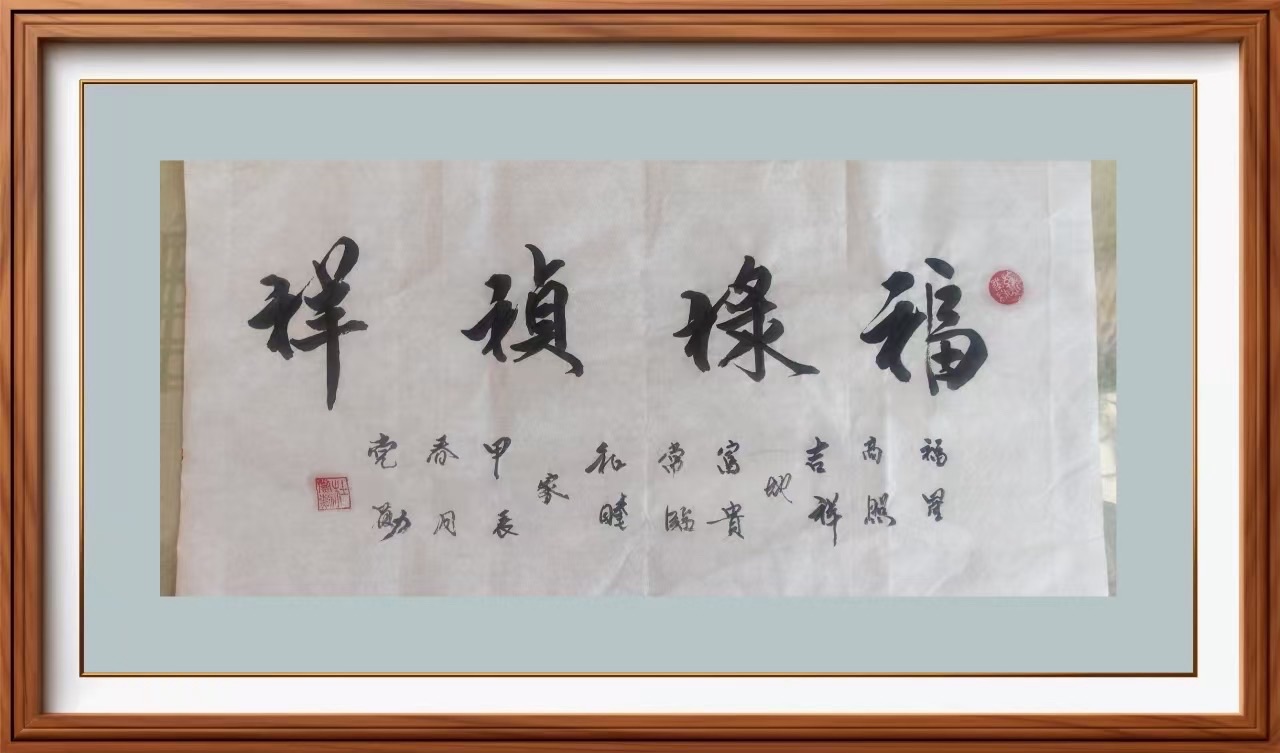 福禄禎祥
福星
高照
吉祥
地
富貴
常臨
和睦
家
甲辰
春月
党